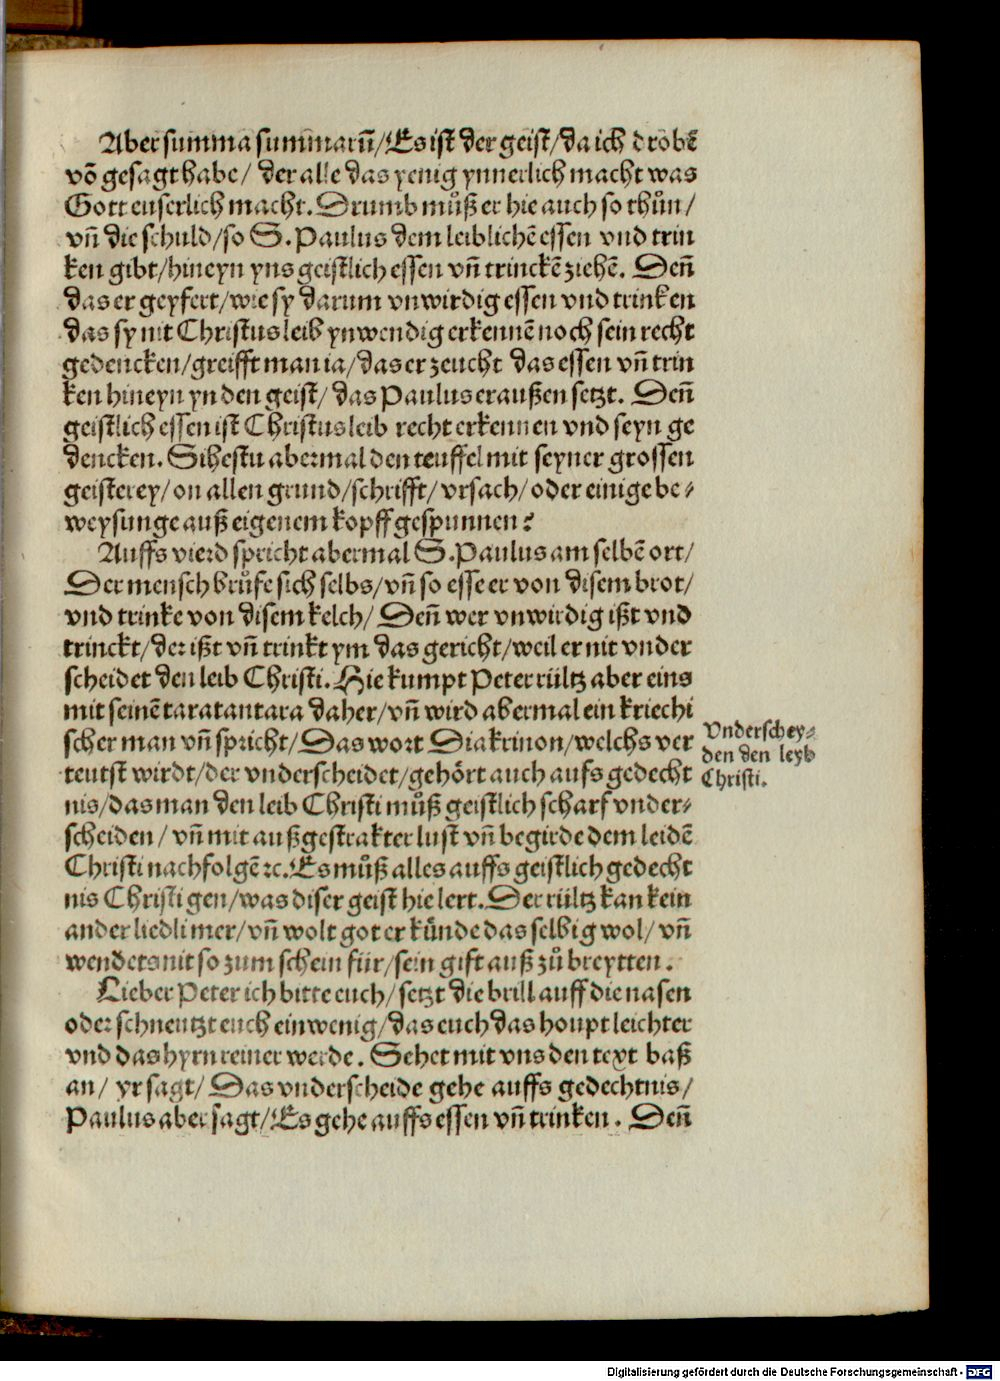 Aber summa summarũ/Es ist der geist/da ich drobẽ
võ gesagt habe/ der alle das yenig ynnerlich macht was
Gott euserlich macht. Drumb můß er hie auch so thůn/
vñ die schuld/so S. Paulus dem leiblichẽ essen vnd trin
ken gibt/hineyn yns geistlich essen vñ trinckẽ ziehẽ. Deñ
das er geyfert/wie sy darum vnwirdig essen vnd trinken
das sy nit Christus leib ynwendig erkennẽ noch sein recht
gedencken/greifft man ia/das er zeucht das essen vñ trin
ken hineyn yn den geist/ das Paulus eraußen setzt. Deñ
geistlich essen ist Christus leib recht erkennen vnd seyn ge
dencken. Sihestu abermal den teuffel mit seyner grossen
geisterey/on allen grund/schrifft/vrsach/oder einige be⸗
weysunge auß eigenem kopff gespunnen?
Auffs vierd spricht abermal S. Paulus am selbẽ ort/
Der mensch brůfe sich selbs/vñ so esse er von disem brot/
vnd trinke von disem kelch/ Deñ wer vnwirdig ißt vnd
trinckt/der ißt vñ trinkt ym das gericht/weil er nit vnder
scheidet den leib Christi. Hie kumpt Peter rültz aber eins
mit seinẽ taratantara daher/vñ wird abermal ein kriechi
scher man vñ spricht/Das wort Diakrinon/welchs ver
teutst wirdt/der vnderscheidet/gehört auch aufs gedecht
nis/das man den leib Christi můß geistlich scharf vnder⸗
scheiden/ vñ mit außgestrakter lust vñ begirde dem leidẽ
Christi nachfolgẽ ꝛc. Es můß alles auffs geistlich gedecht
nis Christi gen/was diser geist hie lert. Der rültz kan kein
ander liedli mer/vñ wolt got er künde das selbig wol/ vñ
wendets nit so zum schein für/sein gift auß zů breytten.
Lieber Peter ich bitte euch/setzt die brill auff die nasen
oder schneutzt euch ein wenig/das euch das houpt leichter
vnd das hyrn reiner werde. Sehet mit vns den text baß
an/ yr sagt/ Das vnderscheide gehe auffs gedechtnis/
Paulus aber sagt/Es gehe auffs essen vñ trinken. Deñ
Vnderschey⸗
den den leyb
Christi.
Digitalisierung gefördert durch die Deutsche Forschungsgemeinschaft - DFG